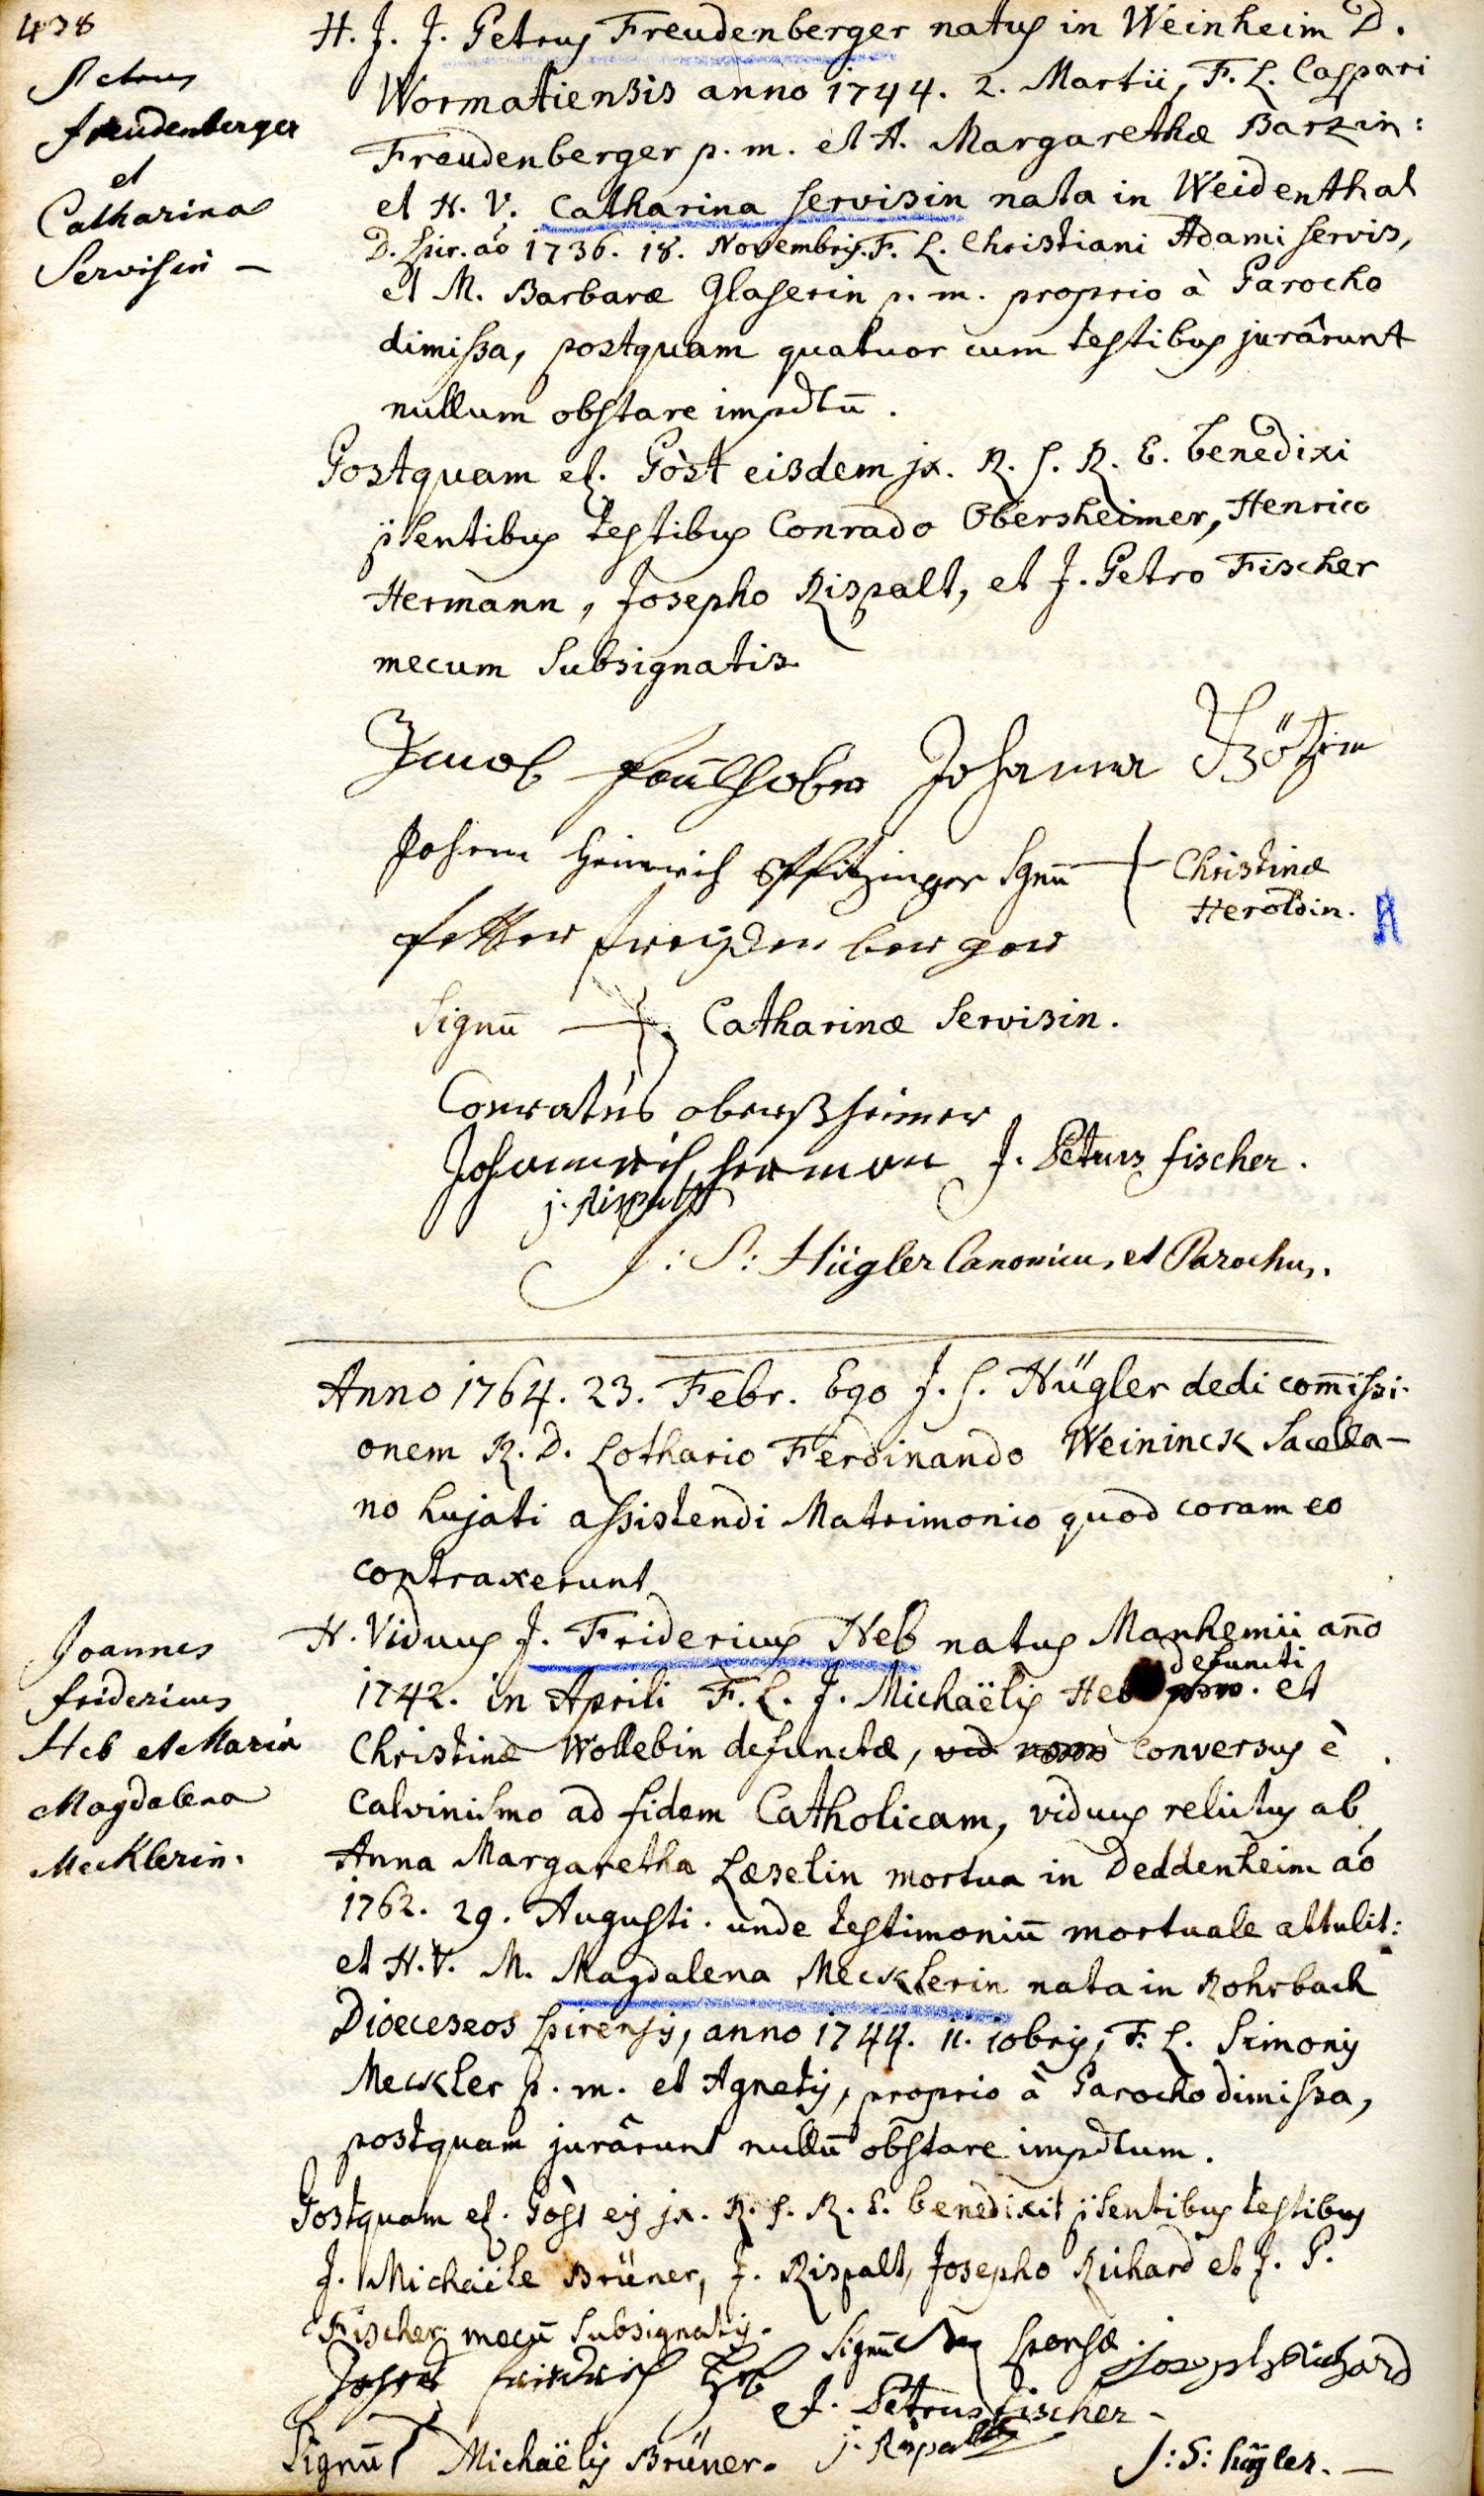 438
Petrus
freudenberger
et
Catharina
Servisin —
H. J. J. Petrus Freudenberger natus in Weinheim D.
Wormatiensis anno 1744. 2. Martii, F. L. Caspari
Freudenberger p. m. et A. Margarethæ Barzin:
et H. V. Catharina Servisin nata in Weidenthal
D. Spir. aó 1736. 18. Novembris. F. L. Christiani Adami Servis,
et M. Barbaræ Glaserin p. m. proprio à Parocho
dimissa, postquam quatuor cum testibus jurârunt
nullum obstare impdtū.
Postquam ej. Pòst eisdem jx. R. S. R. E. benedixi
p̄sentibus testibus Conrado Obersheimer, Henrico
Hermann, Josepho Rispalt, et J. Petro Fischer
mecum subsignatis.
Jacob faulhaber Johanna
Johann Heinrich Pfitzinger Sgnū Christinæ
Heroldin.
petter freyden berger
Signū Catharinæ Servisin.
Conratus obersheimer
herman J. Petrus fischer.
j. Rispalt
J: S: Hügler Canonicus et Parochus.
Anno 1764. 23. Febr. Ego J. S. Hügler dedi com̄issi-
onem R. D. Lothario Ferdinando Weininck Sacella-
no hujati assistendi Matrimonio quod coram eo
contraxerunt
Joannes
fridericus
Heb et Maria
Magdalena
Mecklerin.
H. Viduus J. Fridericus Heb natus Manhemii an̄o
1742. in Aprili F. L. J. Michaëlis Heb defuncti et
Christinæ Wollebin defunctæ, conversus è
Calvinismo ad fidem Catholicam, viduus relictus ab
Anna Margaretha Læselin mortua in Deddenheim aó
1762. 29. Augusti. unde testimoniū mortuale attulit:
et H. V. M. Magdalena Mecklerin nata in Rohrbach
Dioeceseos Spirensis, anno 1744. 11. 10bris, F. L. Simonis
Meckler p. m. et Agnetis, proprio à Parocho dimissa,
postquam jurârunt nullū obstare impdtum.
Postquam ej. Pòst eis jx. R. S. R. E. benedixit p̄sentibus testibus
J. Michaële Brüner, J. Rispalt, Josepho Richard et J. P.
Fischer mecū subsignatis.
Johann friedrich Heb Signū Sponsæ. joseph Richard
J. Petrus fischer —
Signū Michaëlis Brüner. j. Rispalt
J: S: hügler. —